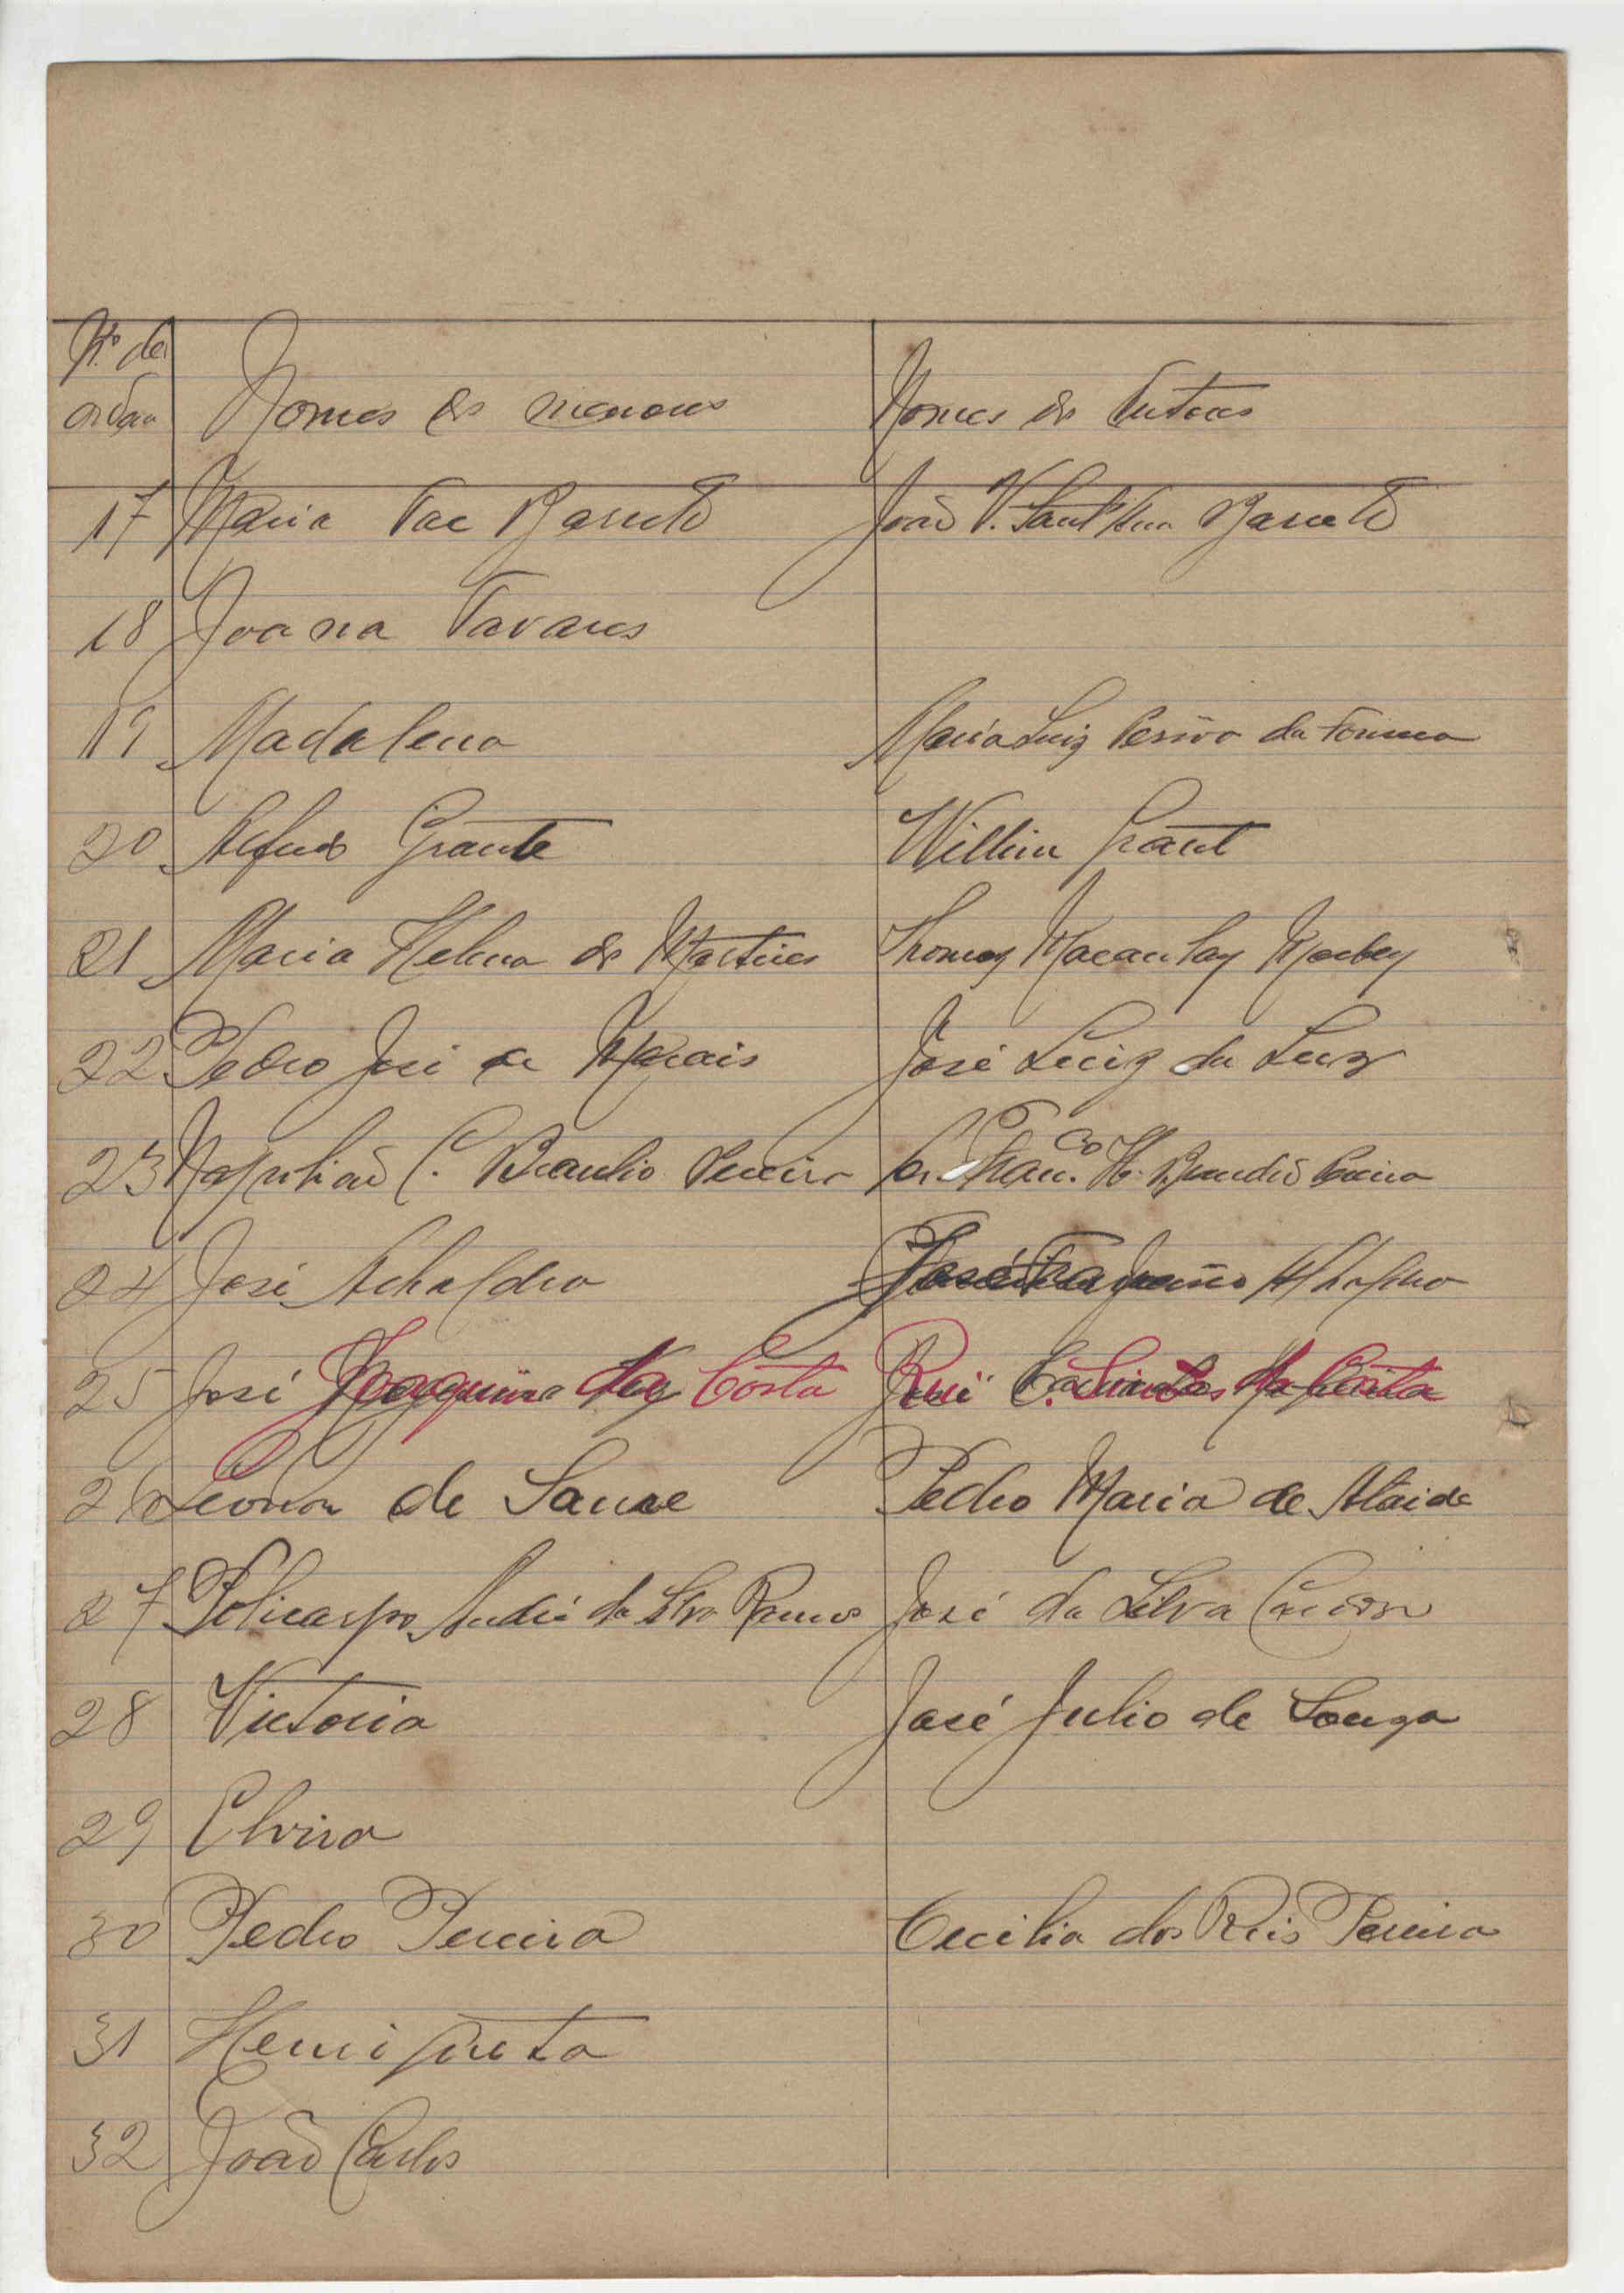 Nº de
ordem Nomes dos menores Nomes dos Tutores
17 Maria Vaz Barreto João V. Sant'Ana Barreto
18 Joana Tavares
19 Madalena Maria Luiz da Fonseca
20 Alfredo Grante William Grant
21 Maria Helena dos Martires Thomaz Macaulay
22 Pedro José de Morais José Luiz da Luz
23 Napolião C. Braulio Pereira Fran.co H. Pereira
24 José José
25 José Joaquim da Costa José C. da Costa
26 Leonor de Pedro Maria de Ataide
27 Policarpo André da Silva Ramos José da Silva
28 Victoria José Julio de Souza
29 Elvira
30 Pedro Pereira Cecilia dos Reis Pereira
31 Henriqueta
32 João Carlos